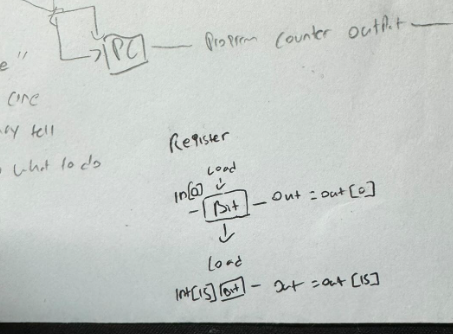 PC — Program counter output —
e"
core
ey tell
what to do
Register
Load
In[0]
Bit — Out = out[0]
Load
Int[15] Bit — out = out [15]